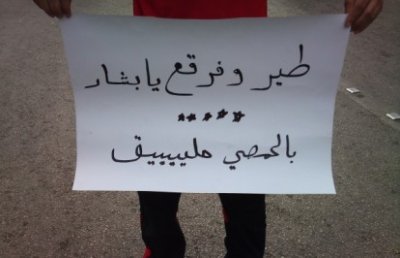 طير وفرقع يا بشار
*****
بالحمصي مليييق